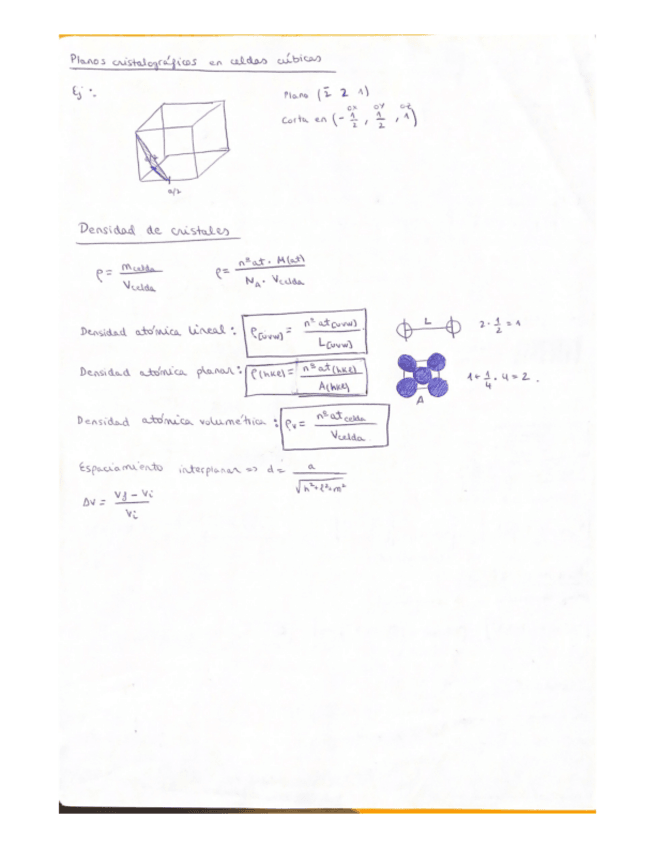 Planos cristalográficos en celdas cúbicas
Ej:
Plano (2̄ 2 1)
Corta en (-1/2, 1/2, 1)
ox oy oz
a/2
Densidad de cristales
ρ = m celda / V celda
ρ = nº at · M(at) / N_A · V celda
Densidad atómica lineal: ρ(uvw) = nº at(uvw) / L(uvw)
L
2 · 1/2 = 1
Densidad atómica planar: ρ(hkl) = nº at(hkl) / A(hkl)
A
1 + 1/4 · 4 = 2.
Densidad atómica volumétrica: ρv = nº at celda / V celda
Espaciamiento interplanar => d = a / √h²+l²+m²
Δv = Vf - Vi / Vi